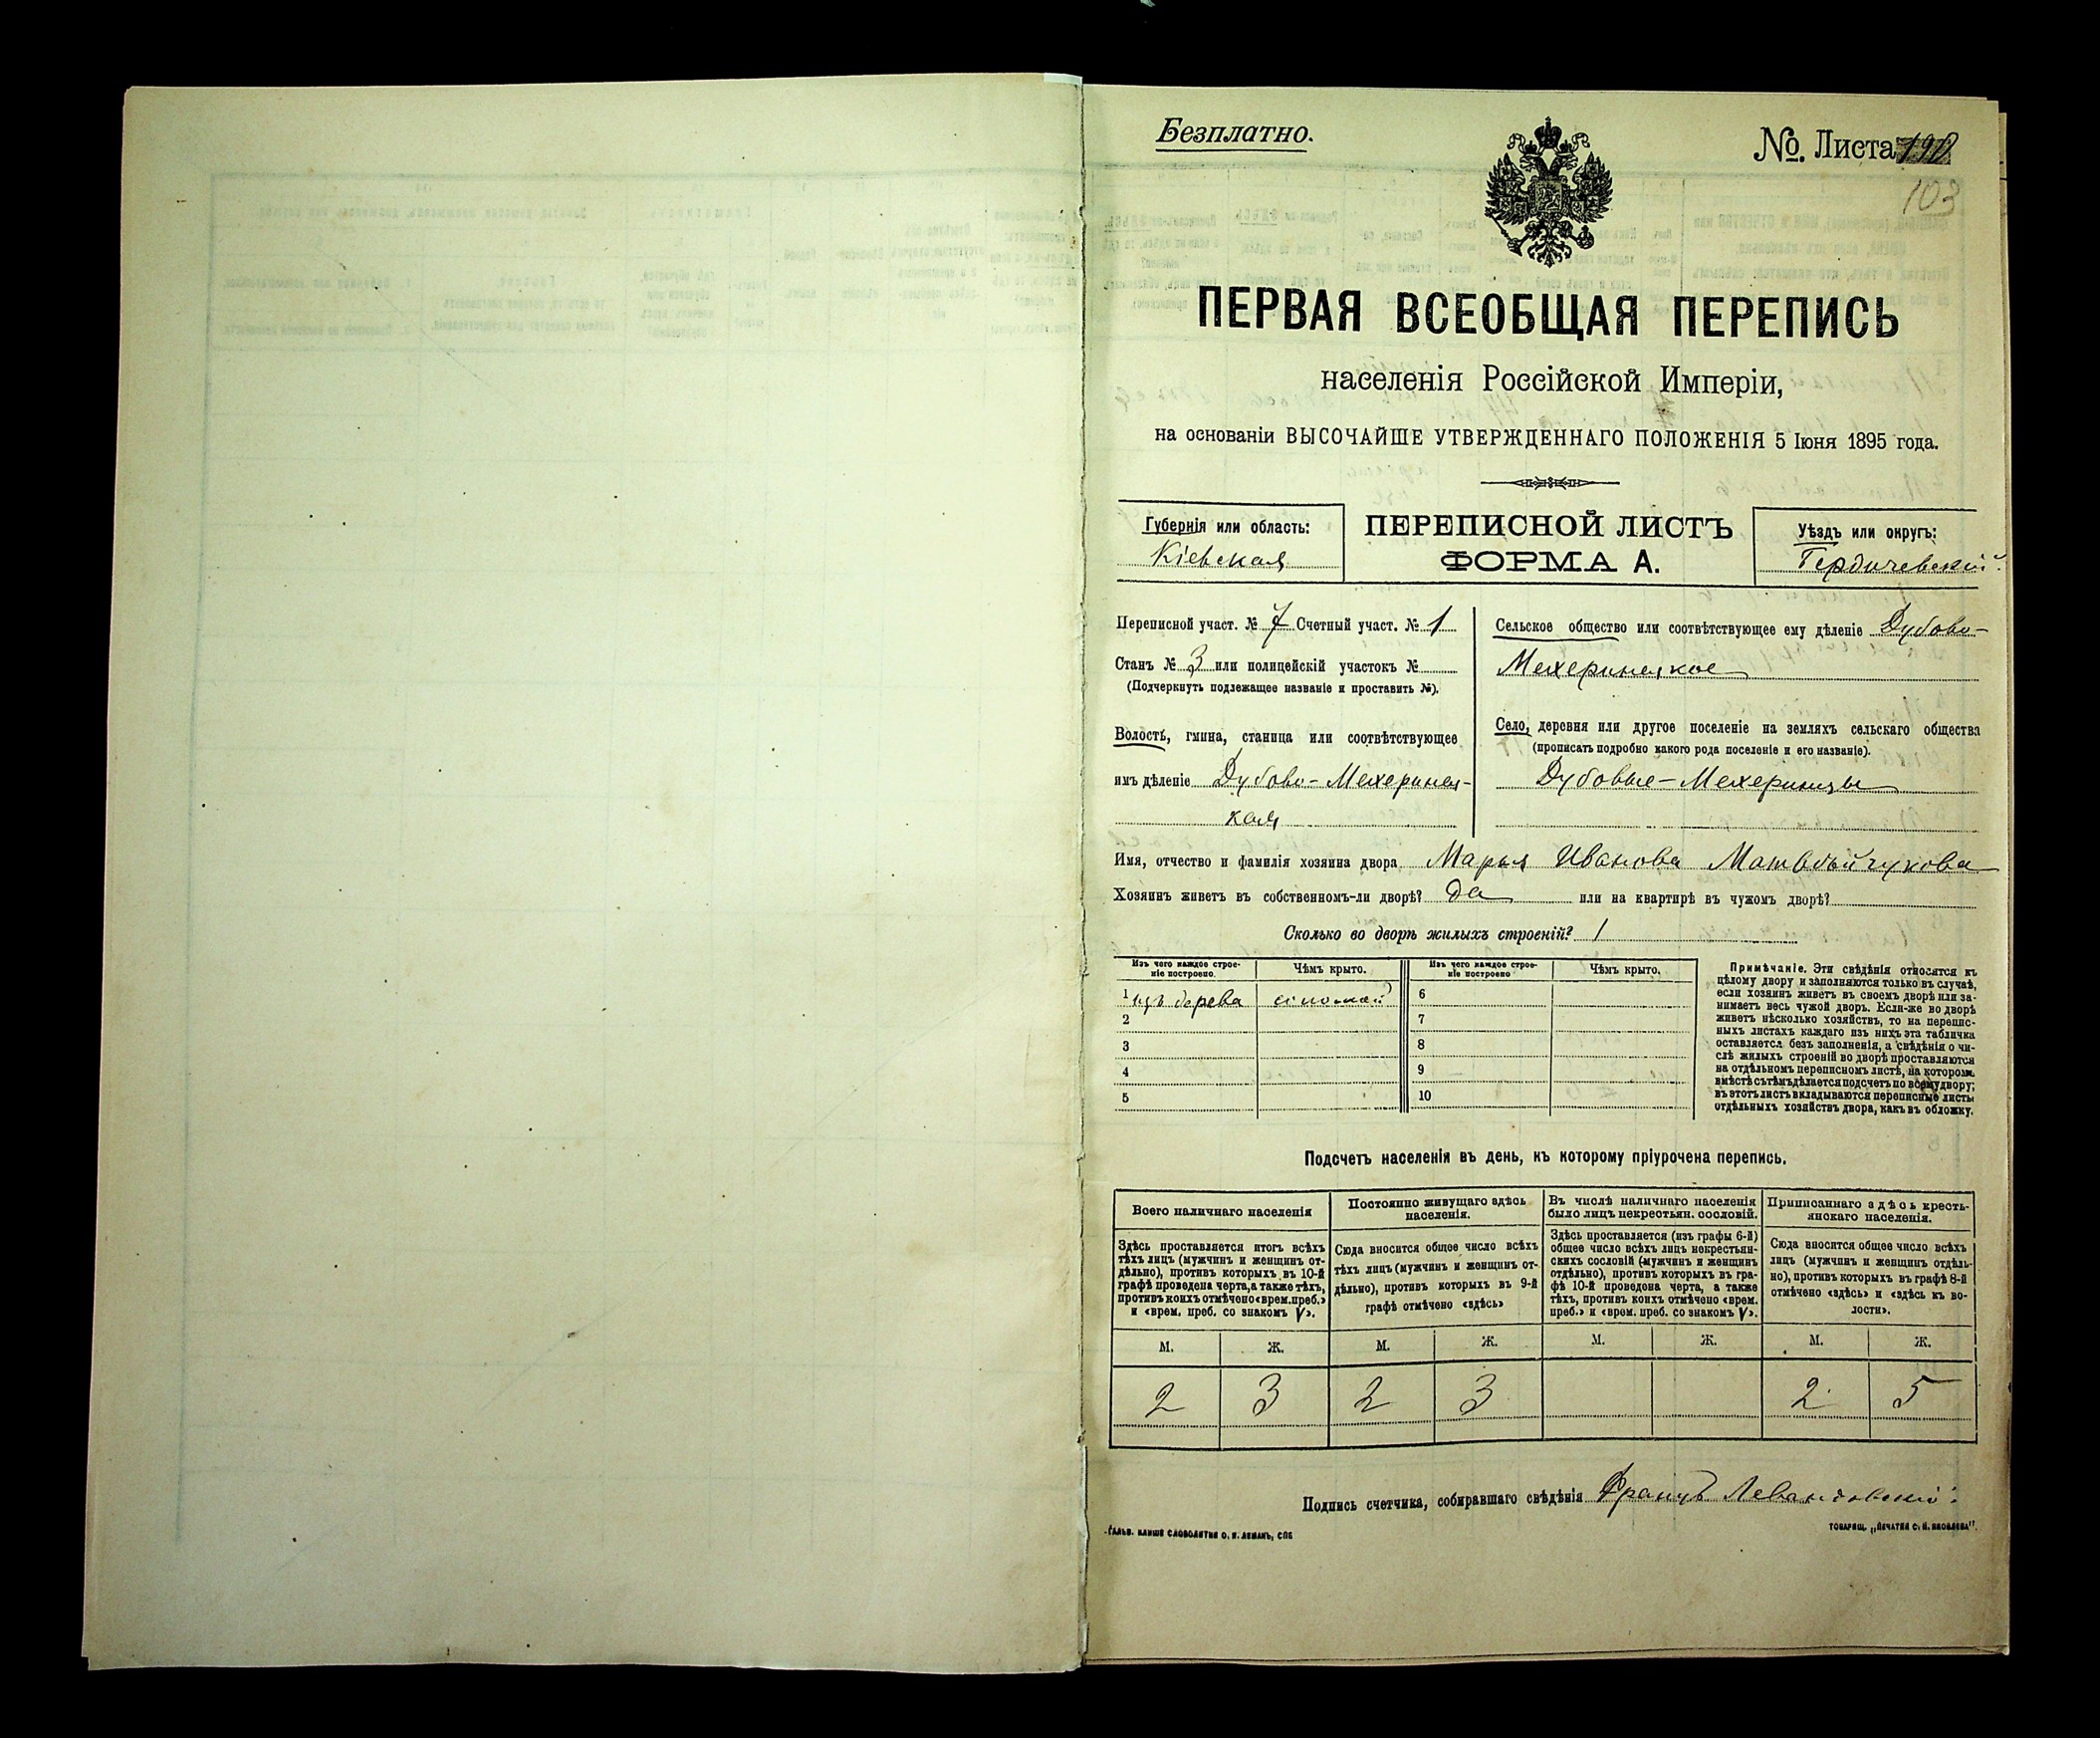 Безплатно.
№. Листа 190
103
ПЕРВАЯ ВСЕОБЩАЯ ПЕРЕПИСЬ
населенія Россійской Имперіи,
на основаніи ВЫСОЧАЙШЕ УТВЕРЖДЕННАГО ПОЛОЖЕНІЯ 5 Іюня 1895 года.
Губернія или область:
Кіевская
ПЕРЕПИСНОЙ ЛИСТЪ
ФОРМА А.
Уѣздъ или округъ:
Бердичевскій
Переписной участ. № 7 Счетный участ. № 1
Станъ № 3 или полицейскій участокъ №
(Подчеркнуть подлежащее названіе и проставить №).
Волость, гмина, станица или соотвѣтствующее
имъ дѣленіе Дубово-Мехеринец-
кая
Сельское общество или соотвѣтствующее ему дѣленіе Дубово-
Мехеринецкое
Село, деревня или другое поселеніе на земляхъ сельскаго общества
(прописать подробно какого рода поселеніе и его названіе).
Дубовые-Мехеринцы
Имя, отчество и фамилія хозяина двора Марья Иванова Матвѣйчукова
Хозяинъ живетъ въ собственномъ-ли дворѣ? да или на квартирѣ въ чужомъ дворѣ?
Сколько во дворѣ жилыхъ строеній? 1
Изъ чего каждое строе-
ніе построено.
Чѣмъ крыто.
Изъ чего каждое строе-
ніе построено
Чѣмъ крыто.
1 изъ дерева соломой 6
2 7
3 8
4 9
5 10
Примѣчаніе. Эти свѣдѣнія относятся къ
цѣлому двору и заполняются только въ случаѣ,
если хозяинъ живетъ въ своемъ дворѣ или за-
нимаетъ весь чужой дворъ. Если-же во дворѣ
живетъ нѣсколько хозяйствъ, то на перепис-
ныхъ листахъ каждаго изъ нихъ эта табличка
оставляется безъ заполненія, а свѣдѣнія о чи-
слѣ жилыхъ строеній во дворѣ проставляются
на отдѣльномъ переписномъ листѣ, на которомъ
вмѣстѣ съ тѣмъ дѣлается подсчетъ по всему двору;
въ этотъ листъ вкладываются переписные листы
отдѣльныхъ хозяйствъ двора, какъ въ обложку.
Подсчетъ населенія въ день, къ которому пріурочена перепись.
Всего наличнаго населенія
Постоянно живущаго здѣсь
населенія.
Въ числѣ наличнаго населенія
было лицъ некрестьян. сословій.
Приписаннаго здѣсь кресть-
янскаго населенія.
Здѣсь проставляется итогъ всѣхъ
тѣхъ лицъ (мужчинъ и женщинъ от-
дѣльно), противъ которыхъ въ 10-й
графѣ проведена черта, а также тѣхъ,
противъ коихъ отмѣчено «врем. преб.»
и «врем. преб. со знакомъ V».
Сюда вносится общее число всѣхъ
тѣхъ лицъ (мужчинъ и женщинъ от-
дѣльно), противъ которыхъ въ 9-й
графѣ отмѣчено «здѣсь»
Здѣсь проставляется (изъ графы 6-й)
общее число всѣхъ лицъ некрестьян-
скихъ сословій (мужчинъ и женщинъ
отдѣльно), противъ которыхъ въ гра-
фѣ 10-й проведена черта, а также
тѣхъ, противъ коихъ отмѣчено «врем.
преб.» и «врем. преб. со знакомъ V».
Сюда вносится общее число всѣхъ
лицъ (мужчинъ и женщинъ отдѣль-
но), противъ которыхъ въ графѣ 8-й
отмѣчено «здѣсь» и «здѣсь къ во-
лости».
М. Ж. М. Ж. М. Ж. М. Ж.
2 3 2 3 2 5
Подпись счетчика, собиравшаго свѣдѣнія Францъ Левандовскій
ГАЛЬВ. КЛИШЕ СЛОВОЛИТНИ О. И. ЛЕМАНЪ, СПБ
ТОВАРИЩ. „ПЕЧАТНЯ С. П. ЯКОВЛЕВА".